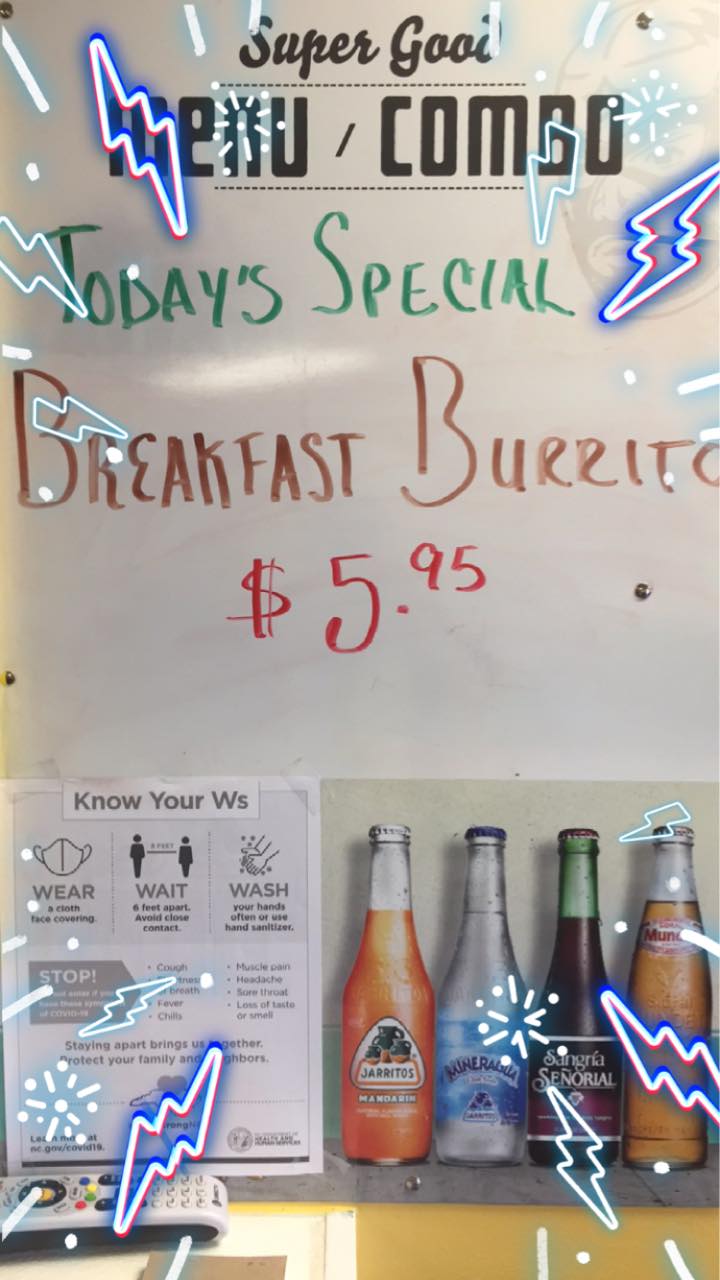 Super Good
MENU / COMBO
TODAY'S SPECIAL
BREAKFAST BURRITO
$ 5.95
Know Your Ws
6 FEET
WEAR
a cloth
face covering.
WAIT
6 feet apart.
Avoid close
contact.
WASH
your hands
often or use
hand sanitizer.
STOP!
enter if you
have these
of COVID-19
• Cough
of breath
• Fever
• Chills
• Muscle pain
• Headache
• Sore throat
• Loss of taste
or smell
Staying apart brings us together.
Protect your family and neighbors.
Learn more at
nc.gov/covid19.
HEALTH AND
HUMAN SERVICES
JARRITOS
MANDARIN
MINERAGUA
JARRITOS
Sangría
SEÑORIAL